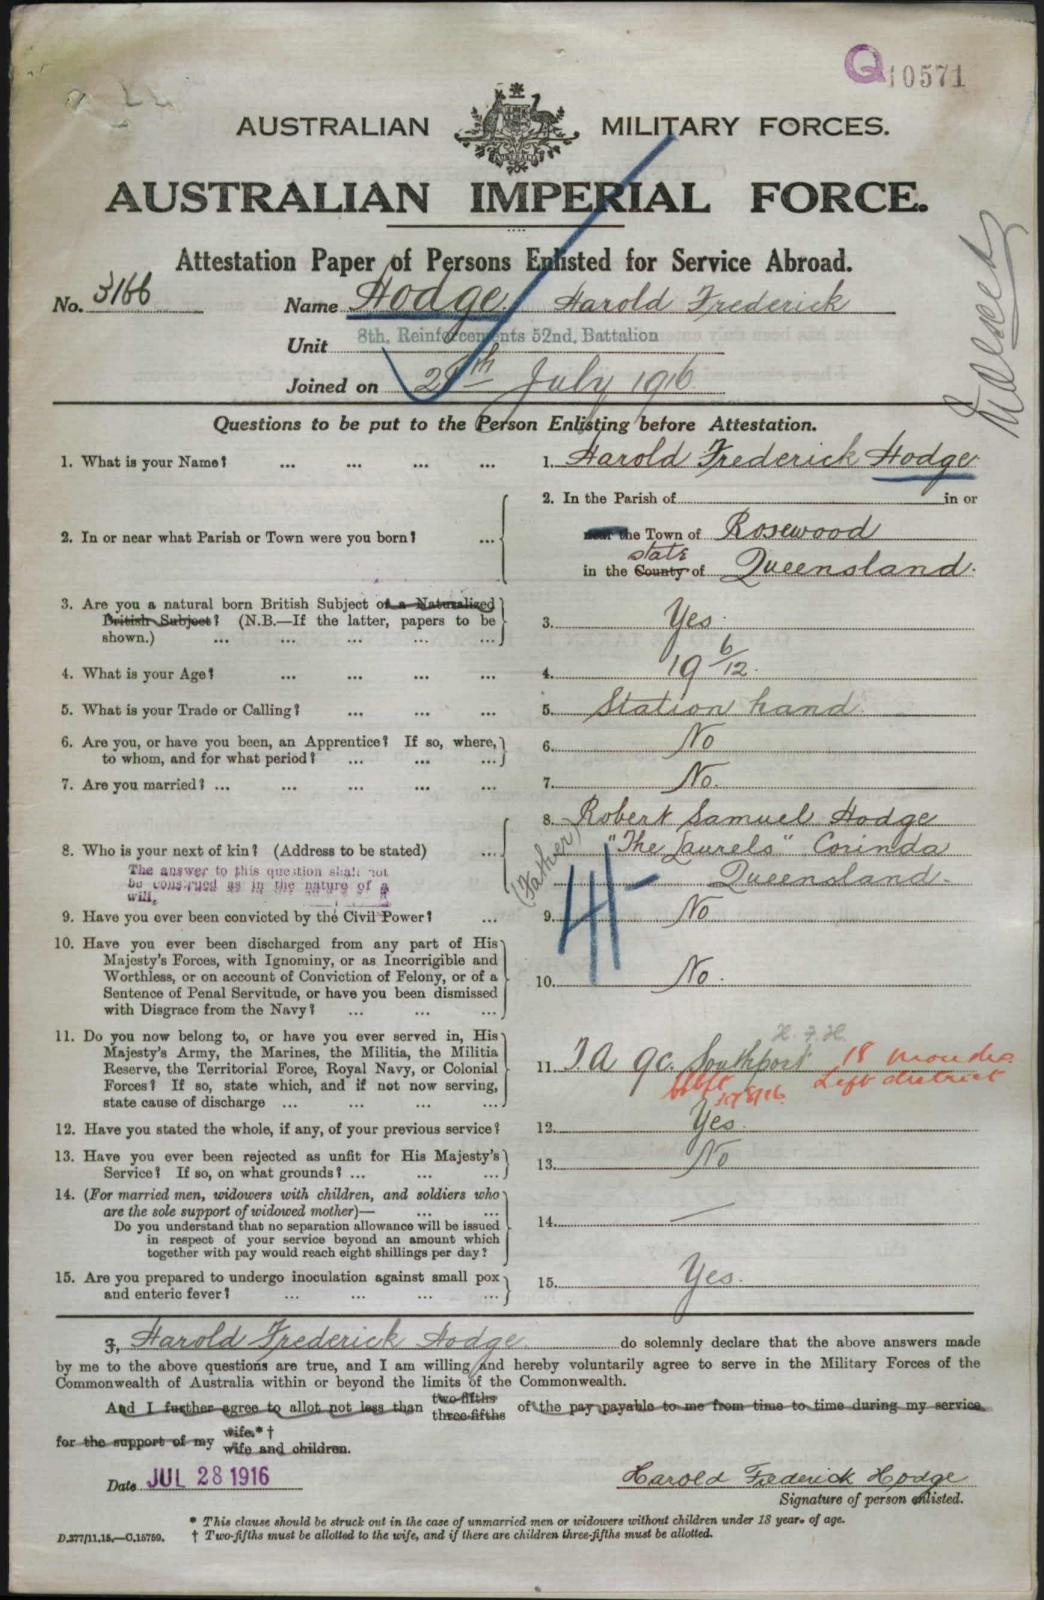 Q 10571
AUSTRALIAN MILITARY FORCES.
AUSTRALIA
AUSTRALIAN IMPERIAL FORCE.
Attestation Paper of Persons Enlisted for Service Abroad.
No. 3166 Name Hodge Harold Frederick
Unit 8th. Reinforcements 52nd. Battalion
Joined on 28th July 1916
Questions to be put to the Person Enlisting before Attestation.
1. What is your Name? ... ... ... ... 1. Harold Frederick Hodge
2. In the Parish of in or
2. In or near what Parish or Town were you born? ... near the Town of Rosewood
state
in the County of Queensland.
3. Are you a natural born British Subject or a Naturalized
British Subject? (N.B.—If the latter, papers to be
shown.) ... ... ... ... ... 3. Yes.
4. What is your Age? ... ... ... ... 4. 19 6/12.
5. What is your Trade or Calling? ... ... ... 5. Station hand.
6. Are you, or have you been, an Apprentice? If so, where,
to whom, and for what period? ... ... ... 6. No
7. Are you married? ... ... ... ... ... 7. No.
8. Robert Samuel Hodge
8. Who is your next of kin? (Address to be stated) ... (Father) "The Laurels" Corinda
Queensland.
The answer to this question shall not
be construed as in the nature of a
will.
9. Have you ever been convicted by the Civil Power? ... 9. No
10. Have you ever been discharged from any part of His
Majesty's Forces, with Ignominy, or as Incorrigible and
Worthless, or on account of Conviction of Felony, or of a
Sentence of Penal Servitude, or have you been dismissed
with Disgrace from the Navy? ... ... ... 10. No.
11. Do you now belong to, or have you ever served in, His
Majesty's Army, the Marines, the Militia, the Militia
Reserve, the Territorial Force, Royal Navy, or Colonial
Forces? If so, state which, and if not now serving,
state cause of discharge ... ... ... ...
H. F. H.
11. 9C. Southport 18 months
Left district
12. Have you stated the whole, if any, of your previous service? 12. Yes.
13. Have you ever been rejected as unfit for His Majesty's
Service? If so, on what grounds? ... ... ... 13. No
14. (For married men, widowers with children, and soldiers who
are the sole support of widowed mother)— ... ...
Do you understand that no separation allowance will be issued
in respect of your service beyond an amount which
together with pay would reach eight shillings per day? 14. —
15. Are you prepared to undergo inoculation against small pox
and enteric fever? ... ... ... ... 15. Yes.
I, Harold Frederick Hodge do solemnly declare that the above answers made
by me to the above questions are true, and I am willing and hereby voluntarily agree to serve in the Military Forces of the
Commonwealth of Australia within or beyond the limits of the Commonwealth.
And I further agree to allot not less than two-fifths three-fifths of the pay payable to me from time to time during my service
for the support of my wife.*† wife and children.
Date JUL 28 1916 Harold Frederick Hodge
Signature of person enlisted.
* This clause should be struck out in the case of unmarried men or widowers without children under 18 years of age.
D.377/11.15.—C.15759. † Two-fifths must be allotted to the wife, and if there are children three-fifths must be allotted.